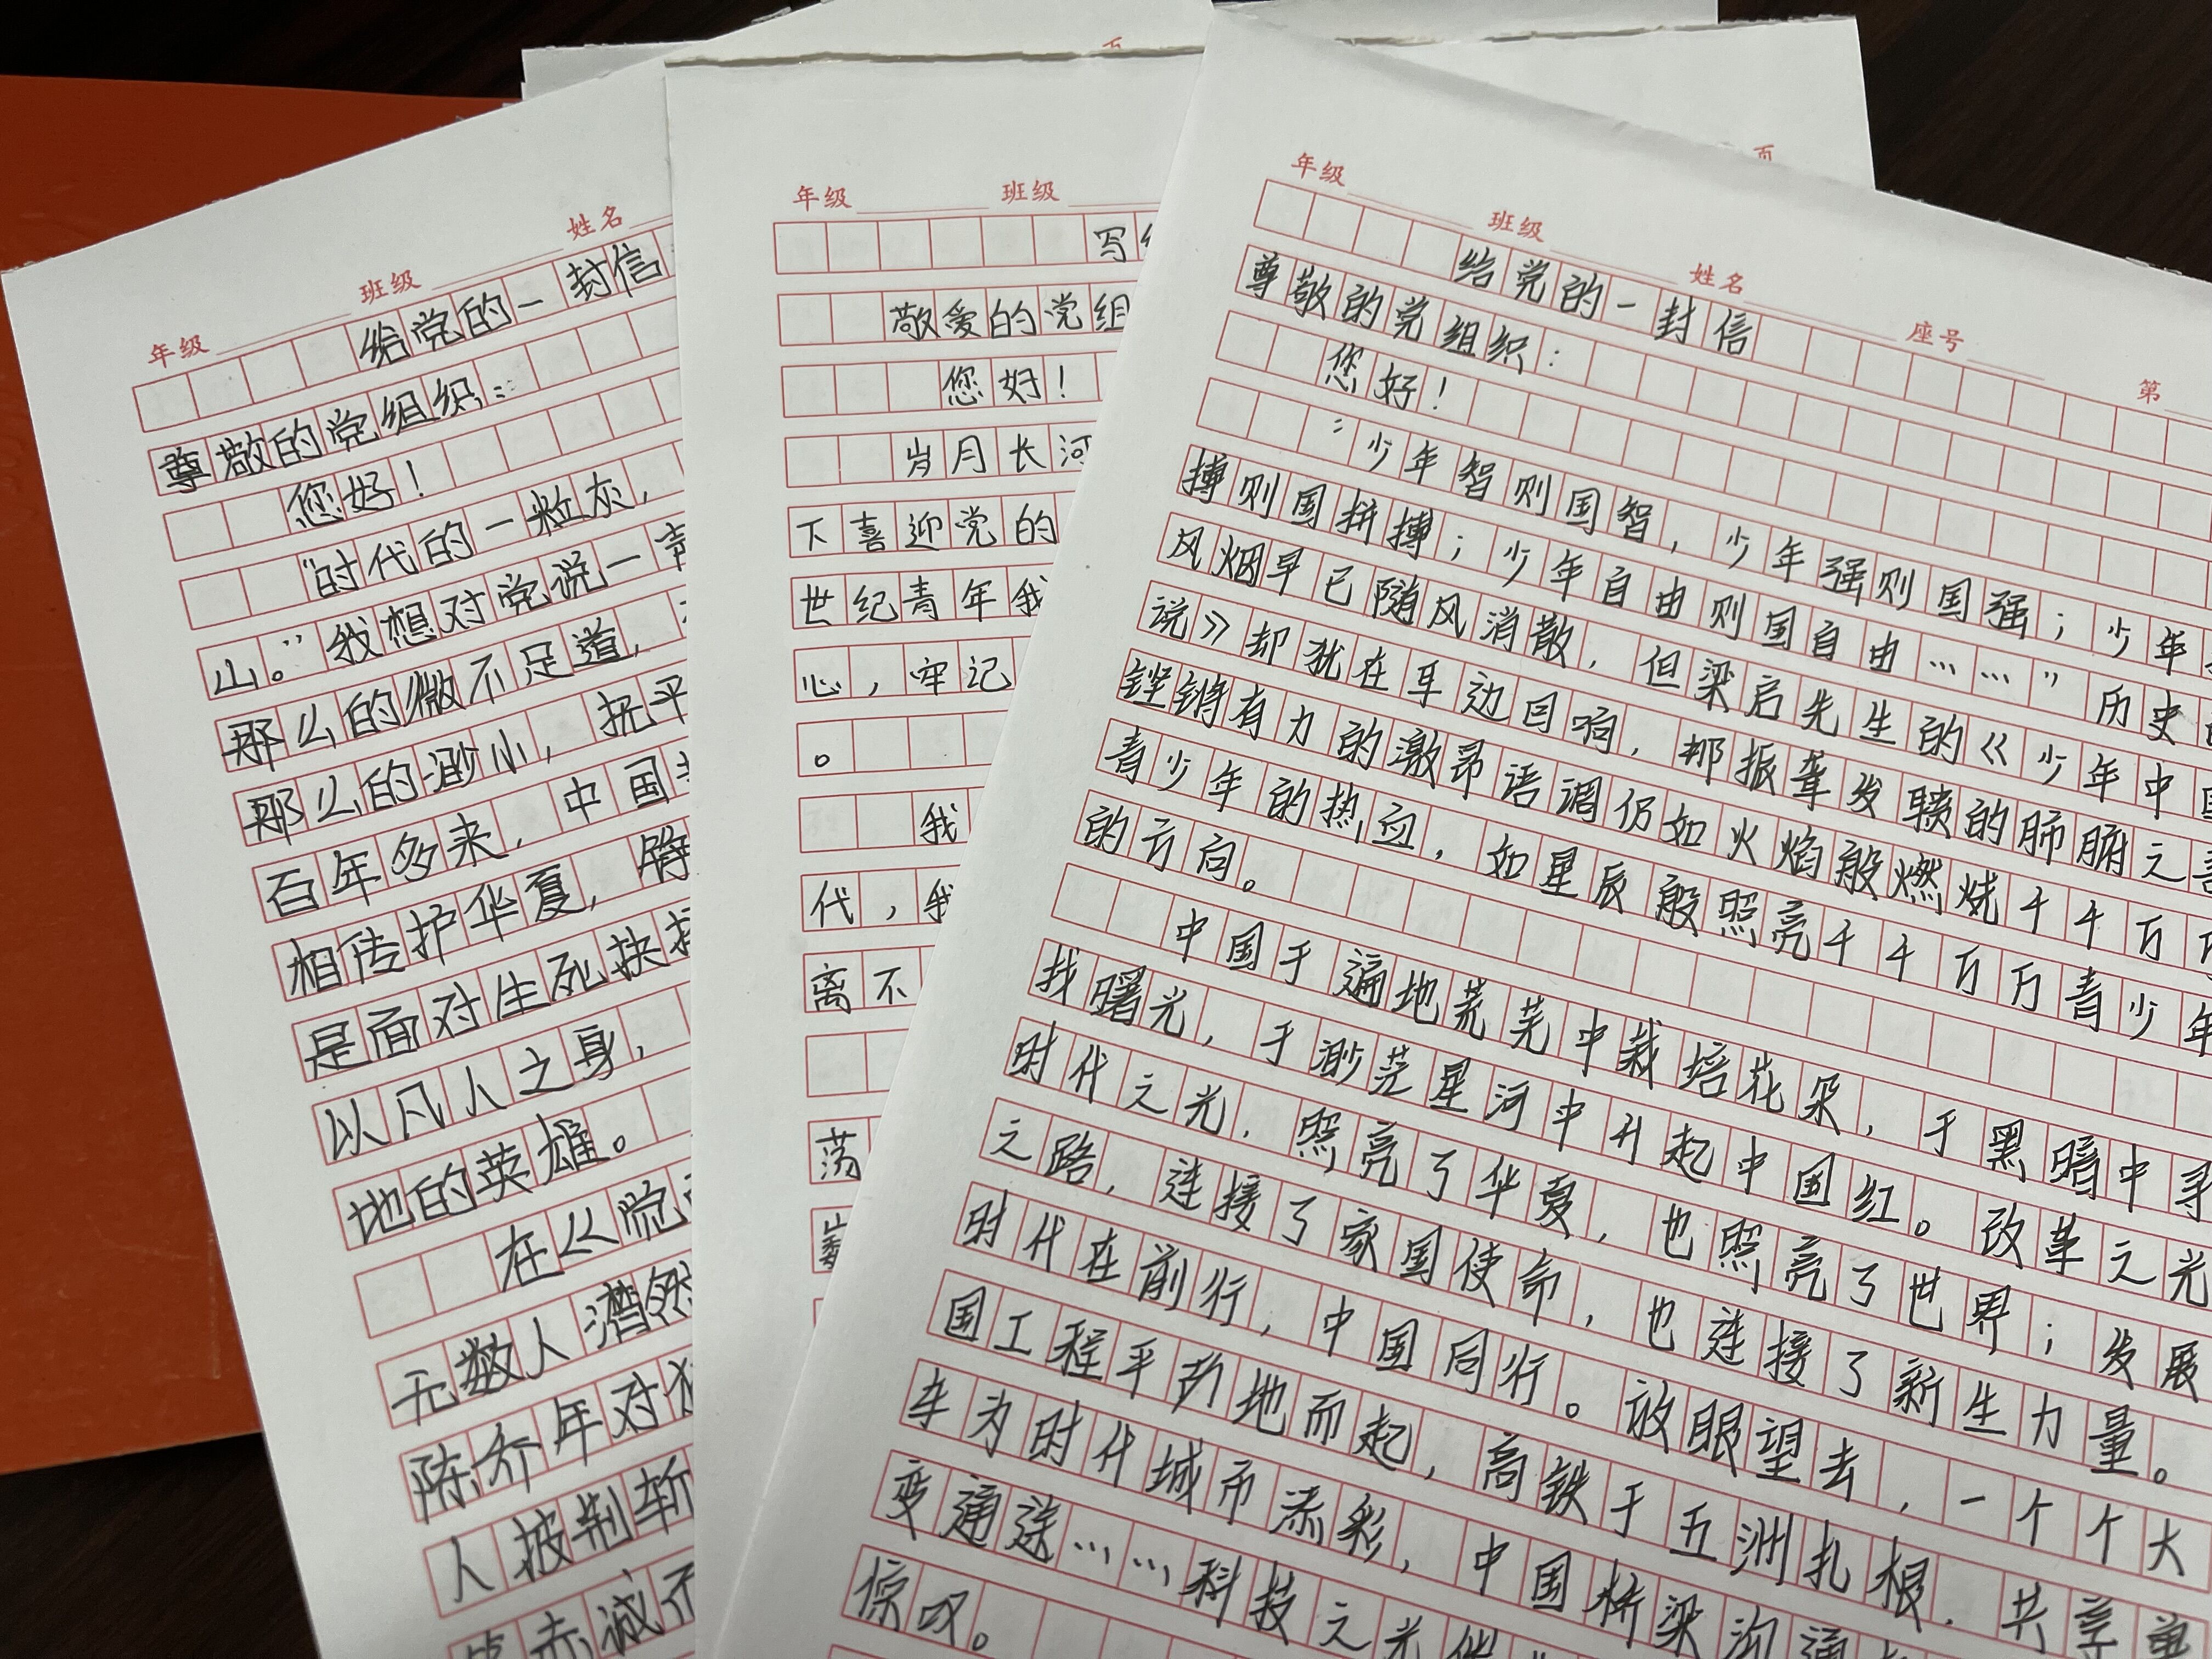 年级 班级 姓名
给党的一封信
尊敬的党组织:
您好!
“时代的一粒灰,
山。”我想对党说一声
那么的微不足道,
那么的渺小,抚平
百年多来,中国
相传护华夏,
是面对生死抉择
以凡人之身,
地的英雄。
在《觉
无数人潸然
陈乔年对
人披荆斩
赤诚不
年级 班级
写给
敬爱的党组
您好!
岁月长河
下喜迎党的
世纪青年我
心,牢记
。
我
代,我
离不
荡
页
年级 班级 姓名 座号 第
给党的一封信
尊敬的党组织:
您好!
“少年智则国智,少年强则国强;少年
搏则国拼搏;少年自由则国自由……”历史
风烟早已随风消散,但梁启先生的《少年中国
说》却犹在耳边回响,那振聋发聩的肺腑之言
铿锵有力的激昂语调仍如火焰般燃烧千千万万
青少年的热血,如星辰般照亮千千万万青少年
的方向。
中国于遍地荒芜中栽培花朵,于黑暗中寻
找曙光,于渺茫星河中升起中国红。改革之光
时代之光,照亮了华夏,也照亮了世界;发展
之路,连接了家国使命,也连接了新生力量。
时代在前行,中国同行。放眼望去,一个个大
国工程平地而起,高铁于五洲扎根,共享单
车为时代城市添彩,中国桥梁沟通
变通途……科技之光
惊叹。